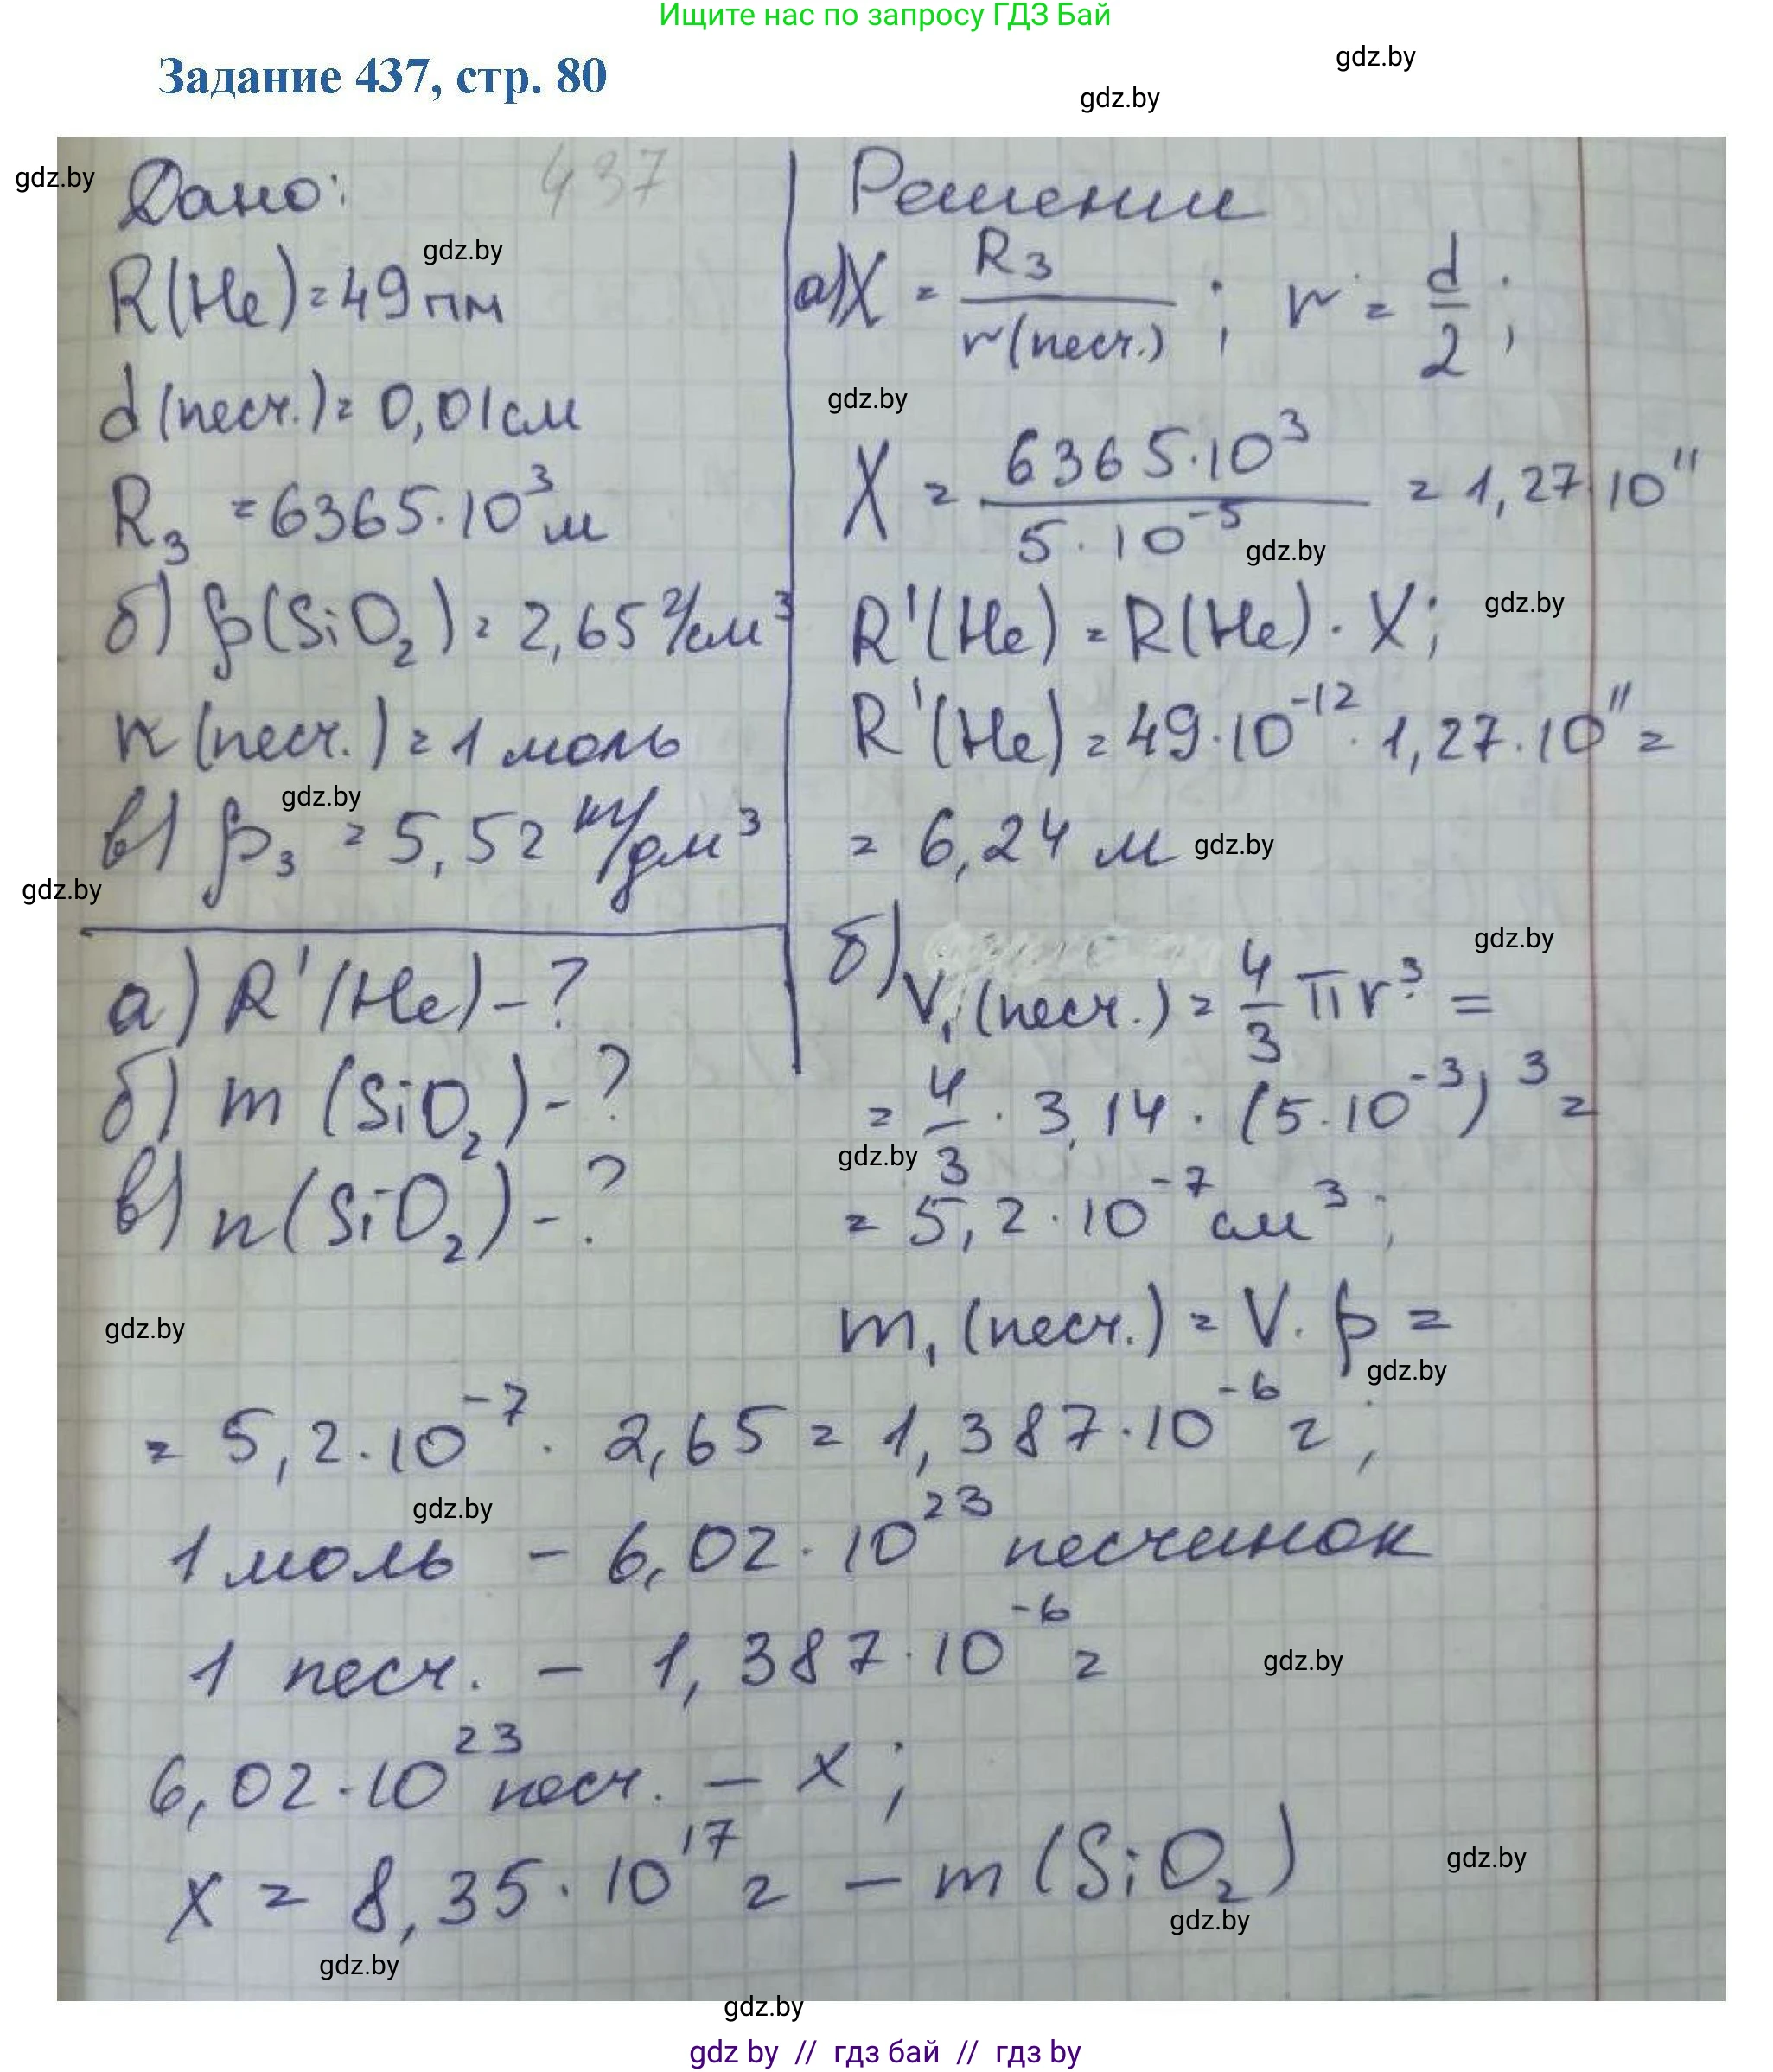 Ищите нас по запросу ГДЗ Бай
gdz.by
Задание 437, стр. 80
gdz.by
gdz.by
Дано:
437
R(He) = 49 пм
gdz.by
d(песч.) = 0,01 см
R₃ = 6365·10³ м
б) ρ(SiO₂) = 2,65 г/см³
n(песч.) = 1 моль
gdz.by
в) ρ₃ = 5,52 кг/дм³
gdz.by
а) R'(He) - ?
б) m(SiO₂) - ?
в) n(SiO₂) - ?
gdz.by
Решение
а) X = R₃ / r(песч.) ; r = d/2 ;
gdz.by
X = 6365·10³ / 5·10⁻⁵ = 1,27·10¹¹
gdz.by
gdz.by
R'(He) = R(He) · X;
R'(He) = 49·10⁻¹² · 1,27·10¹¹ =
= 6,24 м
gdz.by
gdz.by
б) V₁(песч.) = 4/3 πr³ =
= 4/3 · 3,14 · (5·10⁻³)³ =
gdz.by
= 5,2·10⁻⁷ см³;
m₁(песч.) = V·ρ =
gdz.by
= 5,2·10⁻⁷ · 2,65 = 1,387·10⁻⁶ г;
gdz.by
1 моль – 6,02·10²³ песчинок
1 песч. – 1,387·10⁻⁶ г
gdz.by
6,02·10²³ песч. – x;
x = 8,35·10¹⁷ г – m(SiO₂)
gdz.by
gdz.by
gdz.by
gdz.by
gdz by // гдз бай // гдз by